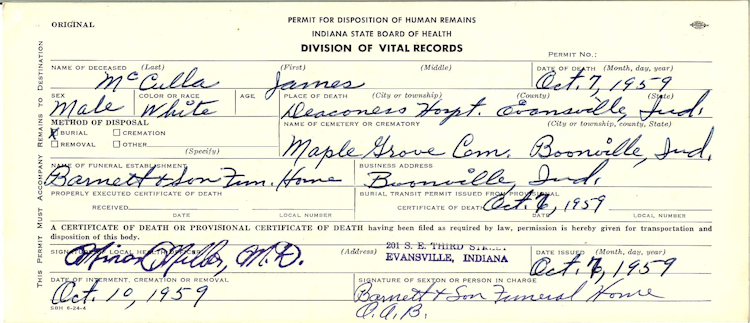 ORIGINAL
PERMIT FOR DISPOSITION OF HUMAN REMAINS
INDIANA STATE BOARD OF HEALTH
DIVISION OF VITAL RECORDS
PERMIT NO.:
NAME OF DECEASED (Last) (First) (Middle) DATE OF DEATH (Month, day, year)
McCulla James Oct. 7, 1959
SEX COLOR OR RACE AGE PLACE OF DEATH (City or township) (County) (State)
Male White Deaconess Hospt. Evansville, Ind.
METHOD OF DISPOSAL NAME OF CEMETERY OR CREMATORY (City or township, county, State)
BURIAL CREMATION
REMOVAL OTHER
(Specify)
Maple Grove Cem. Boonville, Ind.
NAME OF FUNERAL ESTABLISHMENT BUSINESS ADDRESS
Barnett & Son Fun. Home Boonville, Ind.
PROPERLY EXECUTED CERTIFICATE OF DEATH BURIAL TRANSIT PERMIT ISSUED FROM PROVISIONAL
RECEIVED CERTIFICATE OF DEATH Oct. 1959
DATE LOCAL NUMBER DATE LOCAL NUMBER
A CERTIFICATE OF DEATH OR PROVISIONAL CERTIFICATE OF DEATH having been filed as required by law, permission is hereby given for transportation and
disposition of this body.
SIGNATURE OF LOCAL HEALTH OFFICER (Address) 201 S. E. THIRD STREET DATE ISSUED (Month, day, year)
Miller, M.D. EVANSVILLE, INDIANA Oct. 1959
DATE OF INTERMENT, CREMATION OR REMOVAL SIGNATURE OF SEXTON OR PERSON IN CHARGE
Oct. 10, 1959 Barnett & Son Funeral Home
SBH 6-24-4 
THIS PERMIT MUST ACCOMPANY REMAINS TO DESTINATION